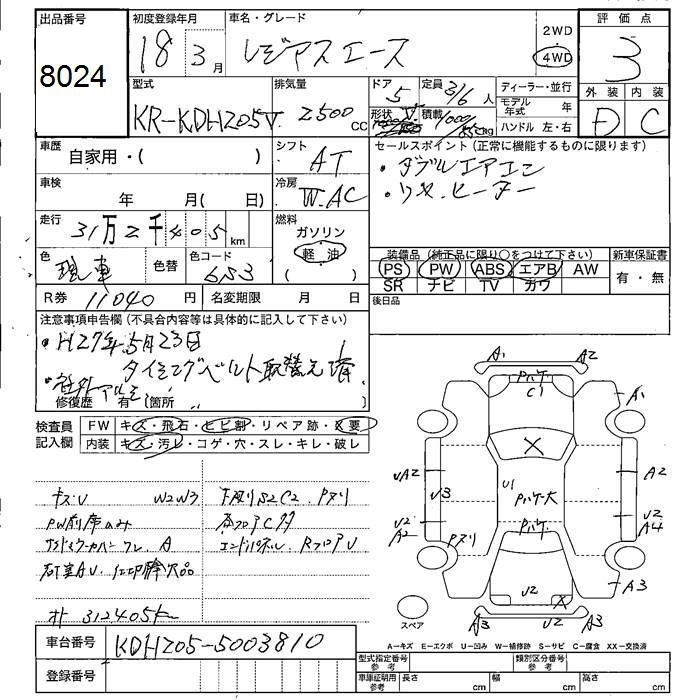 出品番号 初度登録年月 車名・グレード 評価点
8024 18 3月 レジアスエース 2WD 4WD 3
型式 排気量 ドア 定員 ディーラー・並行 外装 内装
KR-KDH205V 2500 CC 5 3/6人 モデル年式 年 D C
形状 V 積載 1000/850kg ハンドル 左・右
車歴 シフト セールスポイント(正常に機能するものに限ります)
自家用・( ) AT ・ダブルエアコン
車検 冷房 ・リヤヒーター
年 月( 日) W.AC
走行 燃料
31万2千405km ガソリン
軽油
( )
色 色替 色コード 装備品(純正品に限り○をつけて下さい) 新車保証書
653 PS PW ABS エアB AW 有・無
SR ナビ TV カワ
R券 11040円 名変期限 月 日 後日品
注意事項申告欄(不具合内容等は具体的に記入して下さい)
・H27年5月23日
タイミングベルト取替え済
・社外アルミ
修復歴 有 (箇所 )
検査員記入欄 FW キズ・飛石・ヒビ割・リペア跡・X要
内装 キズ・汚レ・コゲ・穴・スレ・キレ・破レ
キズU W2W3 下廻りS2C2 Pヌリ
A
エンドパネル、RフロアU
312405km
A1 A2
Pハゲ
C1
A1
UA2 U3 U1 Pハゲ大 A2
U2 A2 Pヌリ Pハゲ U2 A4
U2 A3
スペア A3 U2 A3
A-キズ E-エクボ U-凹み W-補修跡 S-サビ C-腐食 XX-交換済
車台番号 KDH205-5003810
登録番号
型式指定番号 参考 類別区分番号 参考
車庫証明用 参考 長さ cm 幅 cm 高さ cm